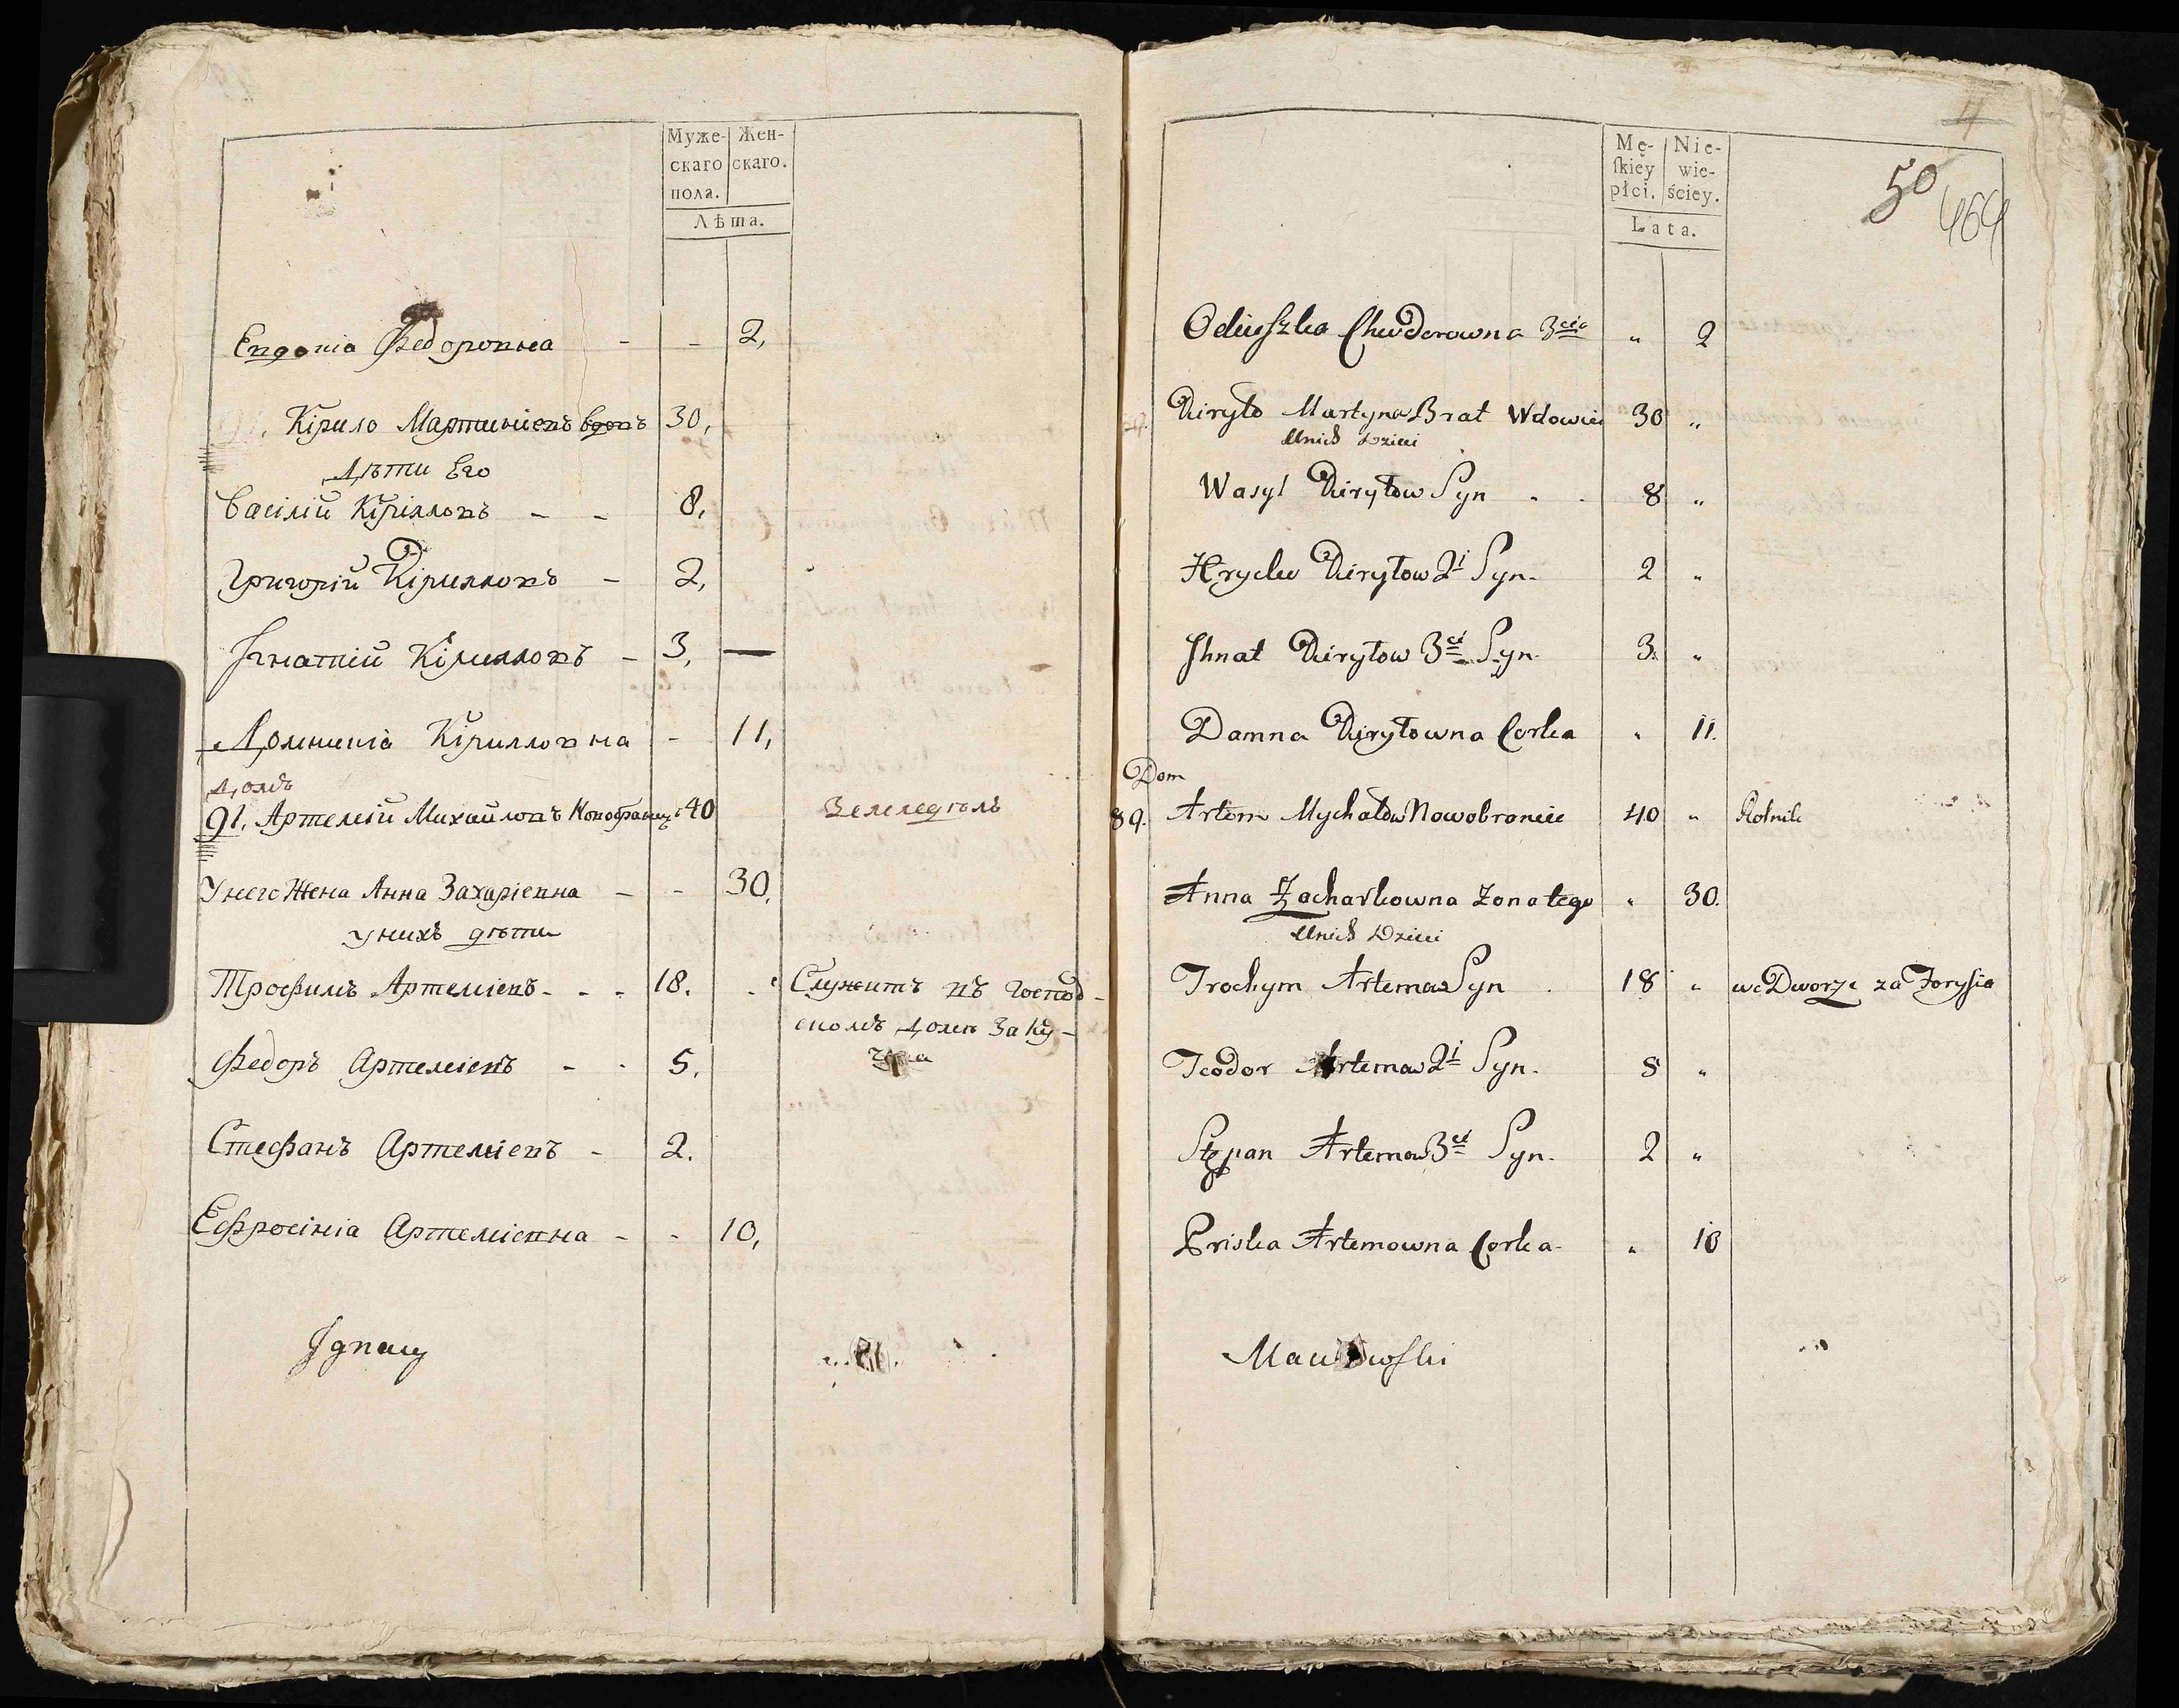 Муже- Жен-
скаго скаго.
пола.
Лѣта.
Евдокіа Федоровна - - 2,
Кірило Мартиніевъ вдовъ 30,
Дѣти Его
Васілій Кірілловъ - - 8,
Григорій Кірилловъ - 2,
Ігнатій Кірилловъ - 3, —
Домникіа Кірилловна - 11,
Домъ
91. Артемій Михайловъ 40 Земледѣлъ
У него Жена Анна Захаріевна - - 30,
У нихъ дѣти
Трофимъ Артеміевъ - - - 18. Служитъ въ Господ-
скомъ Домѣ За Ку-
Федоръ Артеміевъ - - 5,
Стефанъ Артеміевъ - 2.
Ефросініа Артеміевна - - 10,
Ignacy
4
Mę- Nie-
skiéy wie-
płci. ściey.
Lata.
50
464
Odiuszka Chwdorowna 3cia " 2
Kiryło Martynow Brat Wdowiec 30 "
Unich Dzieci
Wasyl Kiryłow Syn - - 8 "
Hrycko Kiryłow 2i Syn. 2 "
Ihnat Kiryłow 3ci Syn. 3. "
Domna Kiryłowna Corka " 11.
Dom
89. Artem Mychałow Nowobraniec 40 " Rolnik
Anna Zacharkowna Zona tego " 30.
Unich Dzieci
Trochym Artemow Syn . 18 " we Dworze za Forysia
Teodor Artemow 2i Syn. 5 "
Stepan Artemow 3ci Syn. 2 "
Priska Artemowna Corka - " 10